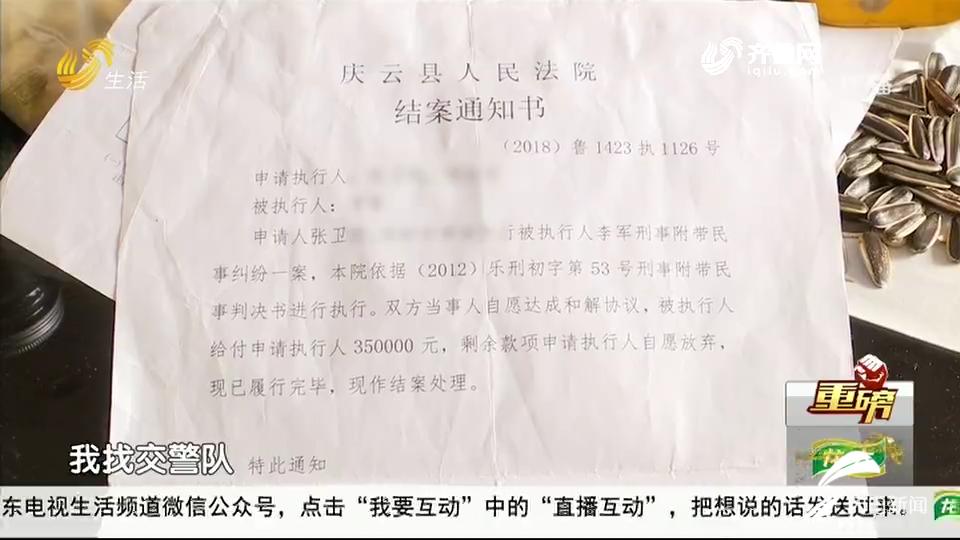 生活
齐鲁网
iqilu.com
庆云县人民法院
结案通知书
（2018）鲁 1423 执 1126 号
申请执行人
被执行人：
申请人张卫 行被执行人李军刑事附带民
事纠纷一案，本院依据（2012）乐刑初字第 53 号刑事附带民
事判决书进行执行。双方当事人自愿达成和解协议，被执行人
给付申请执行人 350000 元，剩余款项申请执行人自愿放弃，
现已履行完毕，现作结案处理。
特此通知
重磅
我找交警队
东电视生活频道微信公众号，点击“我要互动”中的“直播互动”，把想说的话发送过来。